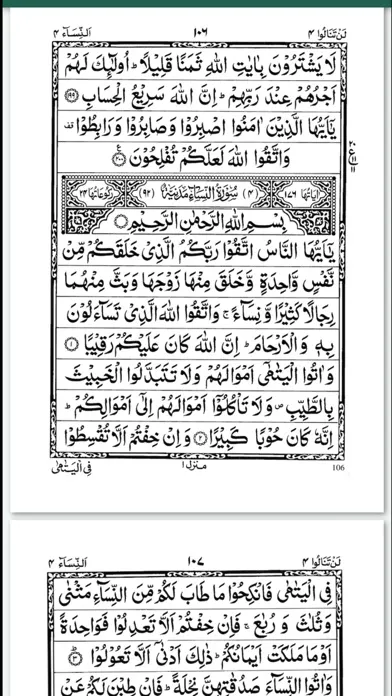 لَنْ تَنَالُوا ٤ ١٠٦ اَلنِّسَآء ٤
لَا يَشْتَرُوْنَ بِاٰيٰتِ اللّٰهِ ثَمَنًا قَلِيْلًا ؕ اُولٰٓئِكَ لَهُمْ
اَجْرُهُمْ عِنْدَ رَبِّهِمْ ؕ اِنَّ اللّٰهَ سَرِيْعُ الْحِسَابِ ﴿١٩٩﴾
يٰۤاَيُّهَا الَّذِيْنَ اٰمَنُوا اصْبِرُوْا وَصَابِرُوْا وَرَابِطُوْا
وَاتَّقُوا اللّٰهَ لَعَلَّكُمْ تُفْلِحُوْنَ ﴿٢٠٠﴾
اٰيَاتُهَا ١٧٦ (٤) سُوْرَةُ النِّسَآءِ مَدَنِيَّةٌ (٩٢) رُكُوْعَاتُهَا ٢٤
بِسْمِ اللّٰهِ الرَّحْمٰنِ الرَّحِيْمِ
يٰۤاَيُّهَا النَّاسُ اتَّقُوْا رَبَّكُمُ الَّذِيْ خَلَقَكُمْ مِّنْ
نَّفْسٍ وَّاحِدَةٍ وَّخَلَقَ مِنْهَا زَوْجَهَا وَبَثَّ مِنْهُمَا
رِجَالًا كَثِيْرًا وَّنِسَآءً ۚ وَاتَّقُوا اللّٰهَ الَّذِيْ تَسَآءَلُوْنَ
بِهٖ وَالْاَرْحَامَ ؕ اِنَّ اللّٰهَ كَانَ عَلَيْكُمْ رَقِيْبًا ﴿١﴾
وَاٰتُوا الْيَتٰمٰۤى اَمْوَالَهُمْ وَلَا تَتَبَدَّلُوا الْخَبِيْثَ
بِالطَّيِّبِ ۪ وَلَا تَاْكُلُوْۤا اَمْوَالَهُمْ اِلٰۤى اَمْوَالِكُمْ ؕ
اِنَّهٗ كَانَ حُوْبًا كَبِيْرًا ﴿٢﴾ وَاِنْ خِفْتُمْ اَلَّا تُقْسِطُوْا
106 منزل ١ فِي الْيَتٰمٰى
لَنْ تَنَالُوا ٤ ١٠٧ اَلنِّسَآء ٤
فِي الْيَتٰمٰى فَانْكِحُوْا مَا طَابَ لَكُمْ مِّنَ النِّسَآءِ مَثْنٰى
وَثُلٰثَ وَرُبٰعَ ۚ فَاِنْ خِفْتُمْ اَلَّا تَعْدِلُوْا فَوَاحِدَةً
اَوْ مَا مَلَكَتْ اَيْمَانُكُمْ ؕ ذٰلِكَ اَدْنٰۤى اَلَّا تَعُوْلُوْا ﴿٣﴾
وَاٰتُوا النِّسَآءَ صَدُقٰتِهِنَّ نِحْلَةً ؕ فَاِنْ طِبْنَ لَكُمْ عَنْ